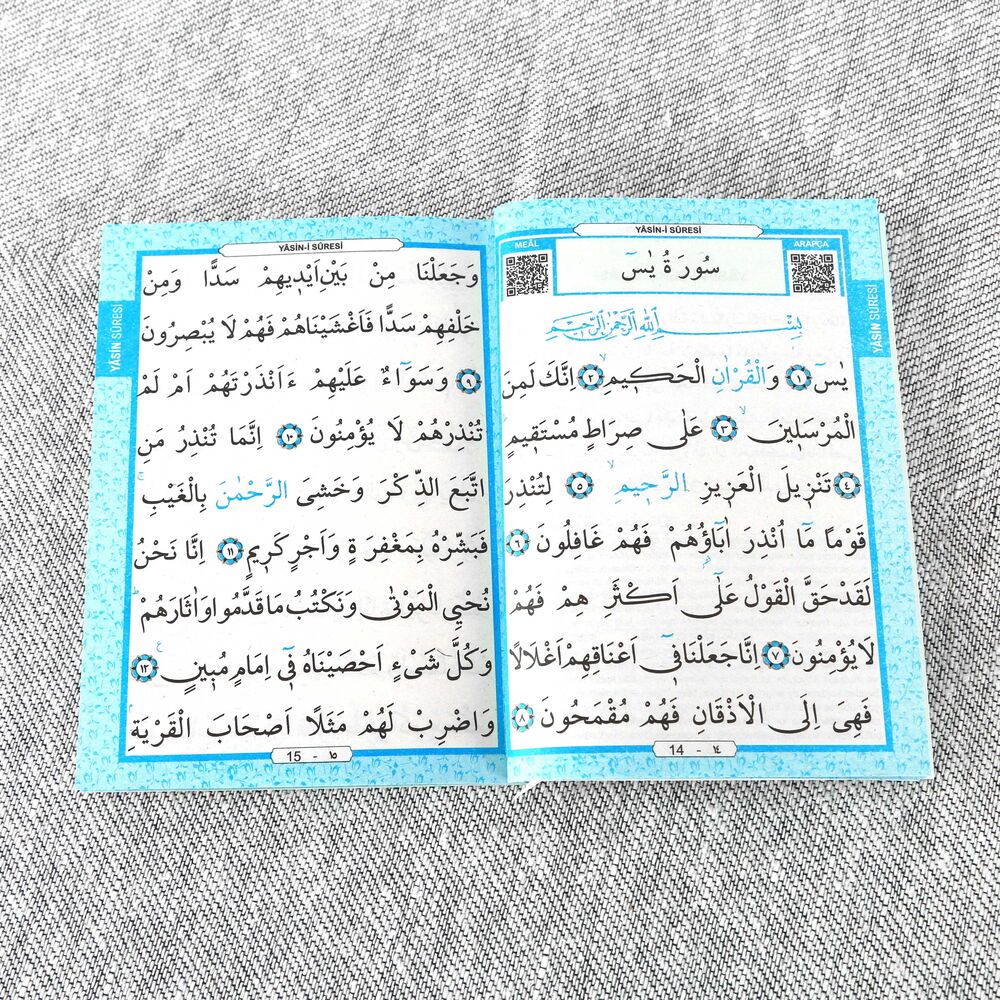 YÂSİN-İ SÛRESİ
MEÂL
ARAPÇA
سُورَةُ يٰسٓ
YÂSİN SÛRESİ
بِسْمِ اللّٰهِ الرَّحْمٰنِ الرَّحِيمِ
يٰسٓ ﴿١﴾ وَالْقُرْاٰنِ الْحَكٖيمِۙ ﴿٢﴾ اِنَّكَ لَمِنَ
الْمُرْسَلٖينَۙ ﴿٣﴾ عَلٰى صِرَاطٍ مُسْتَقٖيمٍؕ
﴿٤﴾ تَنْزٖيلَ الْعَزٖيزِ الرَّحٖيمِۙ ﴿٥﴾ لِتُنْذِرَ
قَوْمًا مَٓا اُنْذِرَ اٰبَٓاؤُ۬هُمْ فَهُمْ غَافِلُونَ ﴿٦﴾
لَقَدْ حَقَّ الْقَوْلُ عَلٰٓى اَكْثَرِهِمْ فَهُمْ
لَا يُؤْمِنُونَ ﴿٧﴾ اِنَّا جَعَلْنَا فٖٓي اَعْنَاقِهِمْ اَغْلَالًا
فَهِيَ اِلَى الْاَذْقَانِ فَهُمْ مُقْمَحُونَ ﴿٨﴾
14 - ١٤
YÂSİN-İ SÛRESİ
YÂSİN SÛRESİ
وَجَعَلْنَا مِنْ بَيْنِ اَيْدٖيهِمْ سَدًّا وَمِنْ
خَلْفِهِمْ سَدًّا فَاَغْشَيْنَاهُمْ فَهُمْ لَا يُبْصِرُونَ
﴿٩﴾ وَسَوَٓاءٌ عَلَيْهِمْ ءَاَنْذَرْتَهُمْ اَمْ لَمْ
تُنْذِرْهُمْ لَا يُؤْمِنُونَ ﴿١٠﴾ اِنَّمَا تُنْذِرُ مَنِ
اتَّبَعَ الذِّكْرَ وَخَشِيَ الرَّحْمٰنَ بِالْغَيْبِۚ
فَبَشِّرْهُ بِمَغْفِرَةٍ وَاَجْرٍ كَرٖيمٍ ﴿١١﴾ اِنَّا نَحْنُ
نُحْيِ الْمَوْتٰى وَنَكْتُبُ مَا قَدَّمُوا وَاٰثَارَهُمْؕ
وَكُلَّ شَيْءٍ اَحْصَيْنَاهُ فٖٓي اِمَامٍ مُبٖينٍ ﴿١٢﴾
وَاضْرِبْ لَهُمْ مَثَلًا اَصْحَابَ الْقَرْيَةِۘ
15 - ١٥